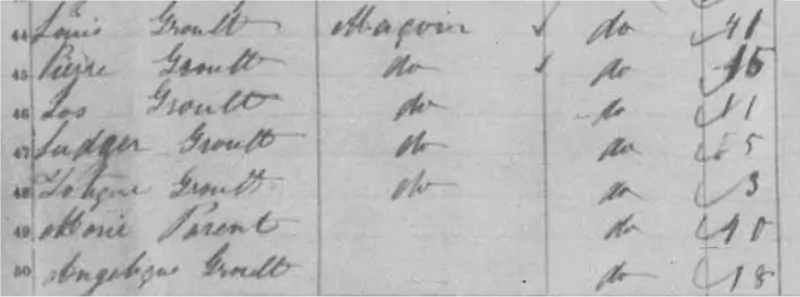 44 Louis Groult Maçon do 41
45 Pierre Groult do do 15
46 Groult do do 11
47 Ludger Groult do do 5
48 Groult do do 3
49 Marie Parent do 40
50 Angelique Groult do 18